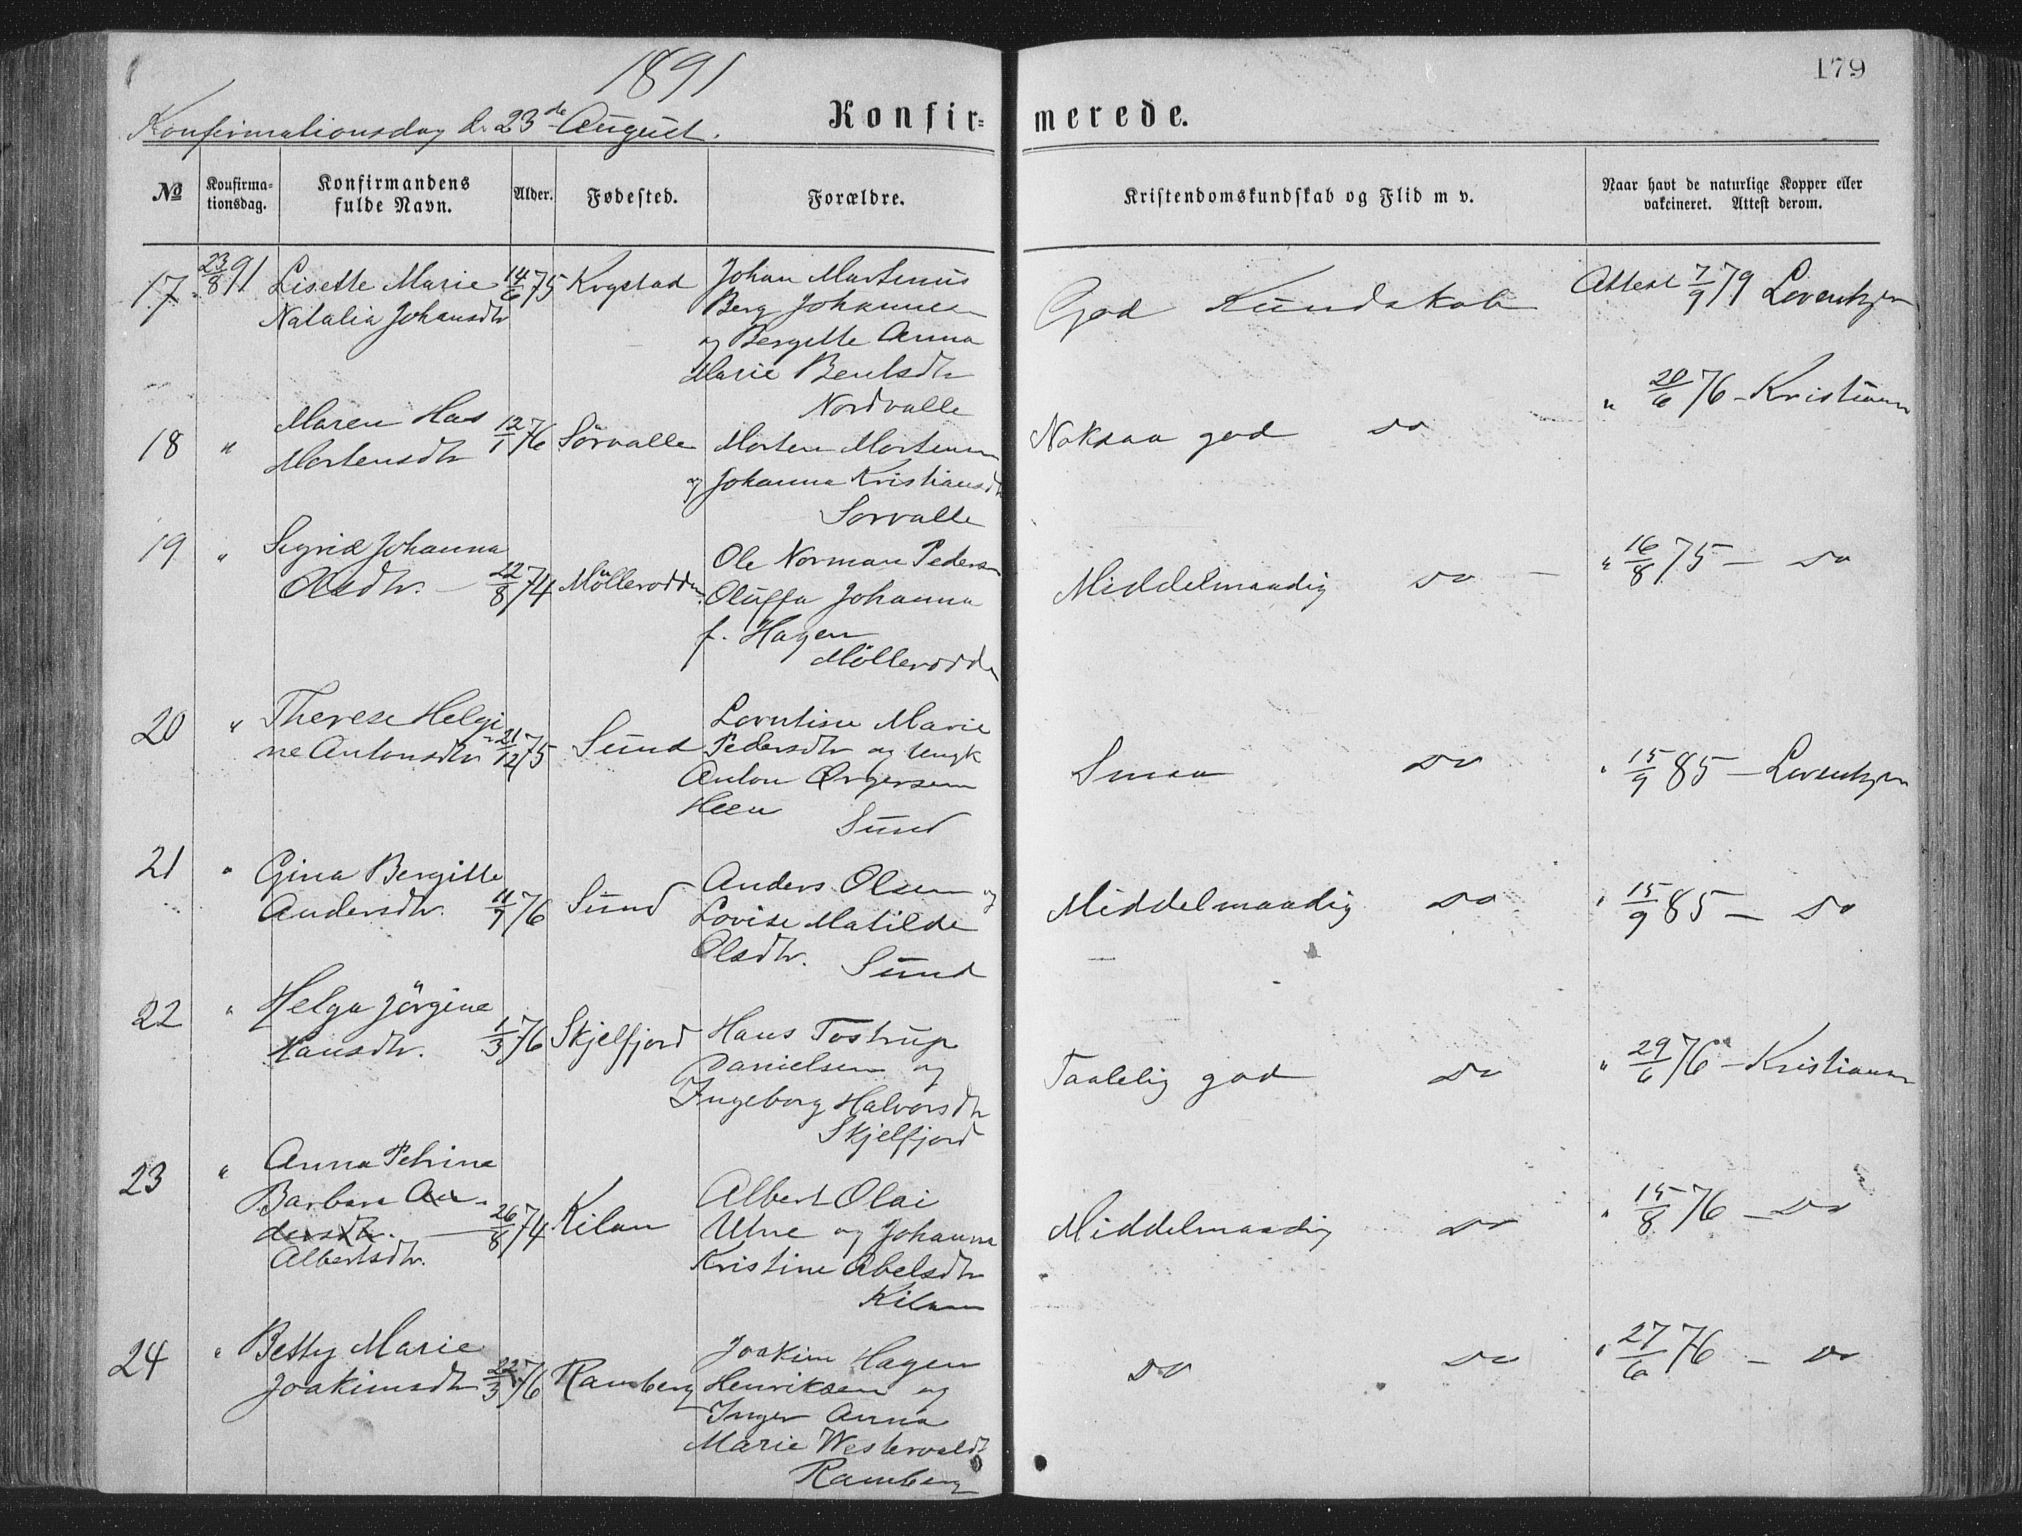 1891
179
Konfirmationsdag d. 23de August.
Konfir= merede.
No
Konfirma-
tionsdag.
Konfirmandens
fulde Navn.
Alder.
Fødested.
Forældre.
Kristendomskundskab og Flid m v.
Naar havt de naturlige Kopper eller
vakcineret. Attest derom.
17. 23/8 91 Lisette Marie 14/6 75 Krystad Johan Martinus God Kundskab Attest 7/9 79
Natalia Johansdtr Berg Johannesen
og Bergitte Anna
Marie Bentsdtr
Nordvalle
18 " Maren Has 12/1 76 Sörvalle Morten Mortensen Noksaa god do " 20/6 76 - Kristiansen
Mortensdtr og Johanna Kristiansdtr
Sorvalle
19 " Sigrid Johanna Ole Norman Pedersen
Olsdtr. 22/8 74 Möllerodden Oluffa Johanna Middelmaadig do - " 16/8 75 - do
f. Hagen
Möllerodden
20 " Therese Helgi- Lorntine Marie
ne Antonsdtr 21/12 75 Sund Pedersdtr og Ungk Smaa do " 15/9 85 -
Anton Ørgersen
Heen Sund
21 " Gina Bergitte Anders Olsen og
Andersdtr. 11/9 76 Sund Lovise Matilde Middelmaadig do " 15/9 85 - do
Olsdtr. Sund
22 " Helga Jörgine Hans Tostrup
Hansdtr. 1/3 76 Skjelfjord Danielsen og Taalelig god do " 29/6 76 - Kristiansen
Ingeborg Halvorsdtr
Skjelfjord
23 " Anna Petrine
Barbara An- Albert Olai
dersdtr. 26/8 74 Kilan Utne og Johanna Middelmaadig do " 15/8 76 - do
Albertsdtr. Kristine Abelsdtr
Kilan
24 " Betty Marie Joakim Hagen
Joakimsdtr 22/3 76 Ramberg Henriksen og do do " 27/6 76 - do
Inger Anna
Marie Westervald
Ramberg